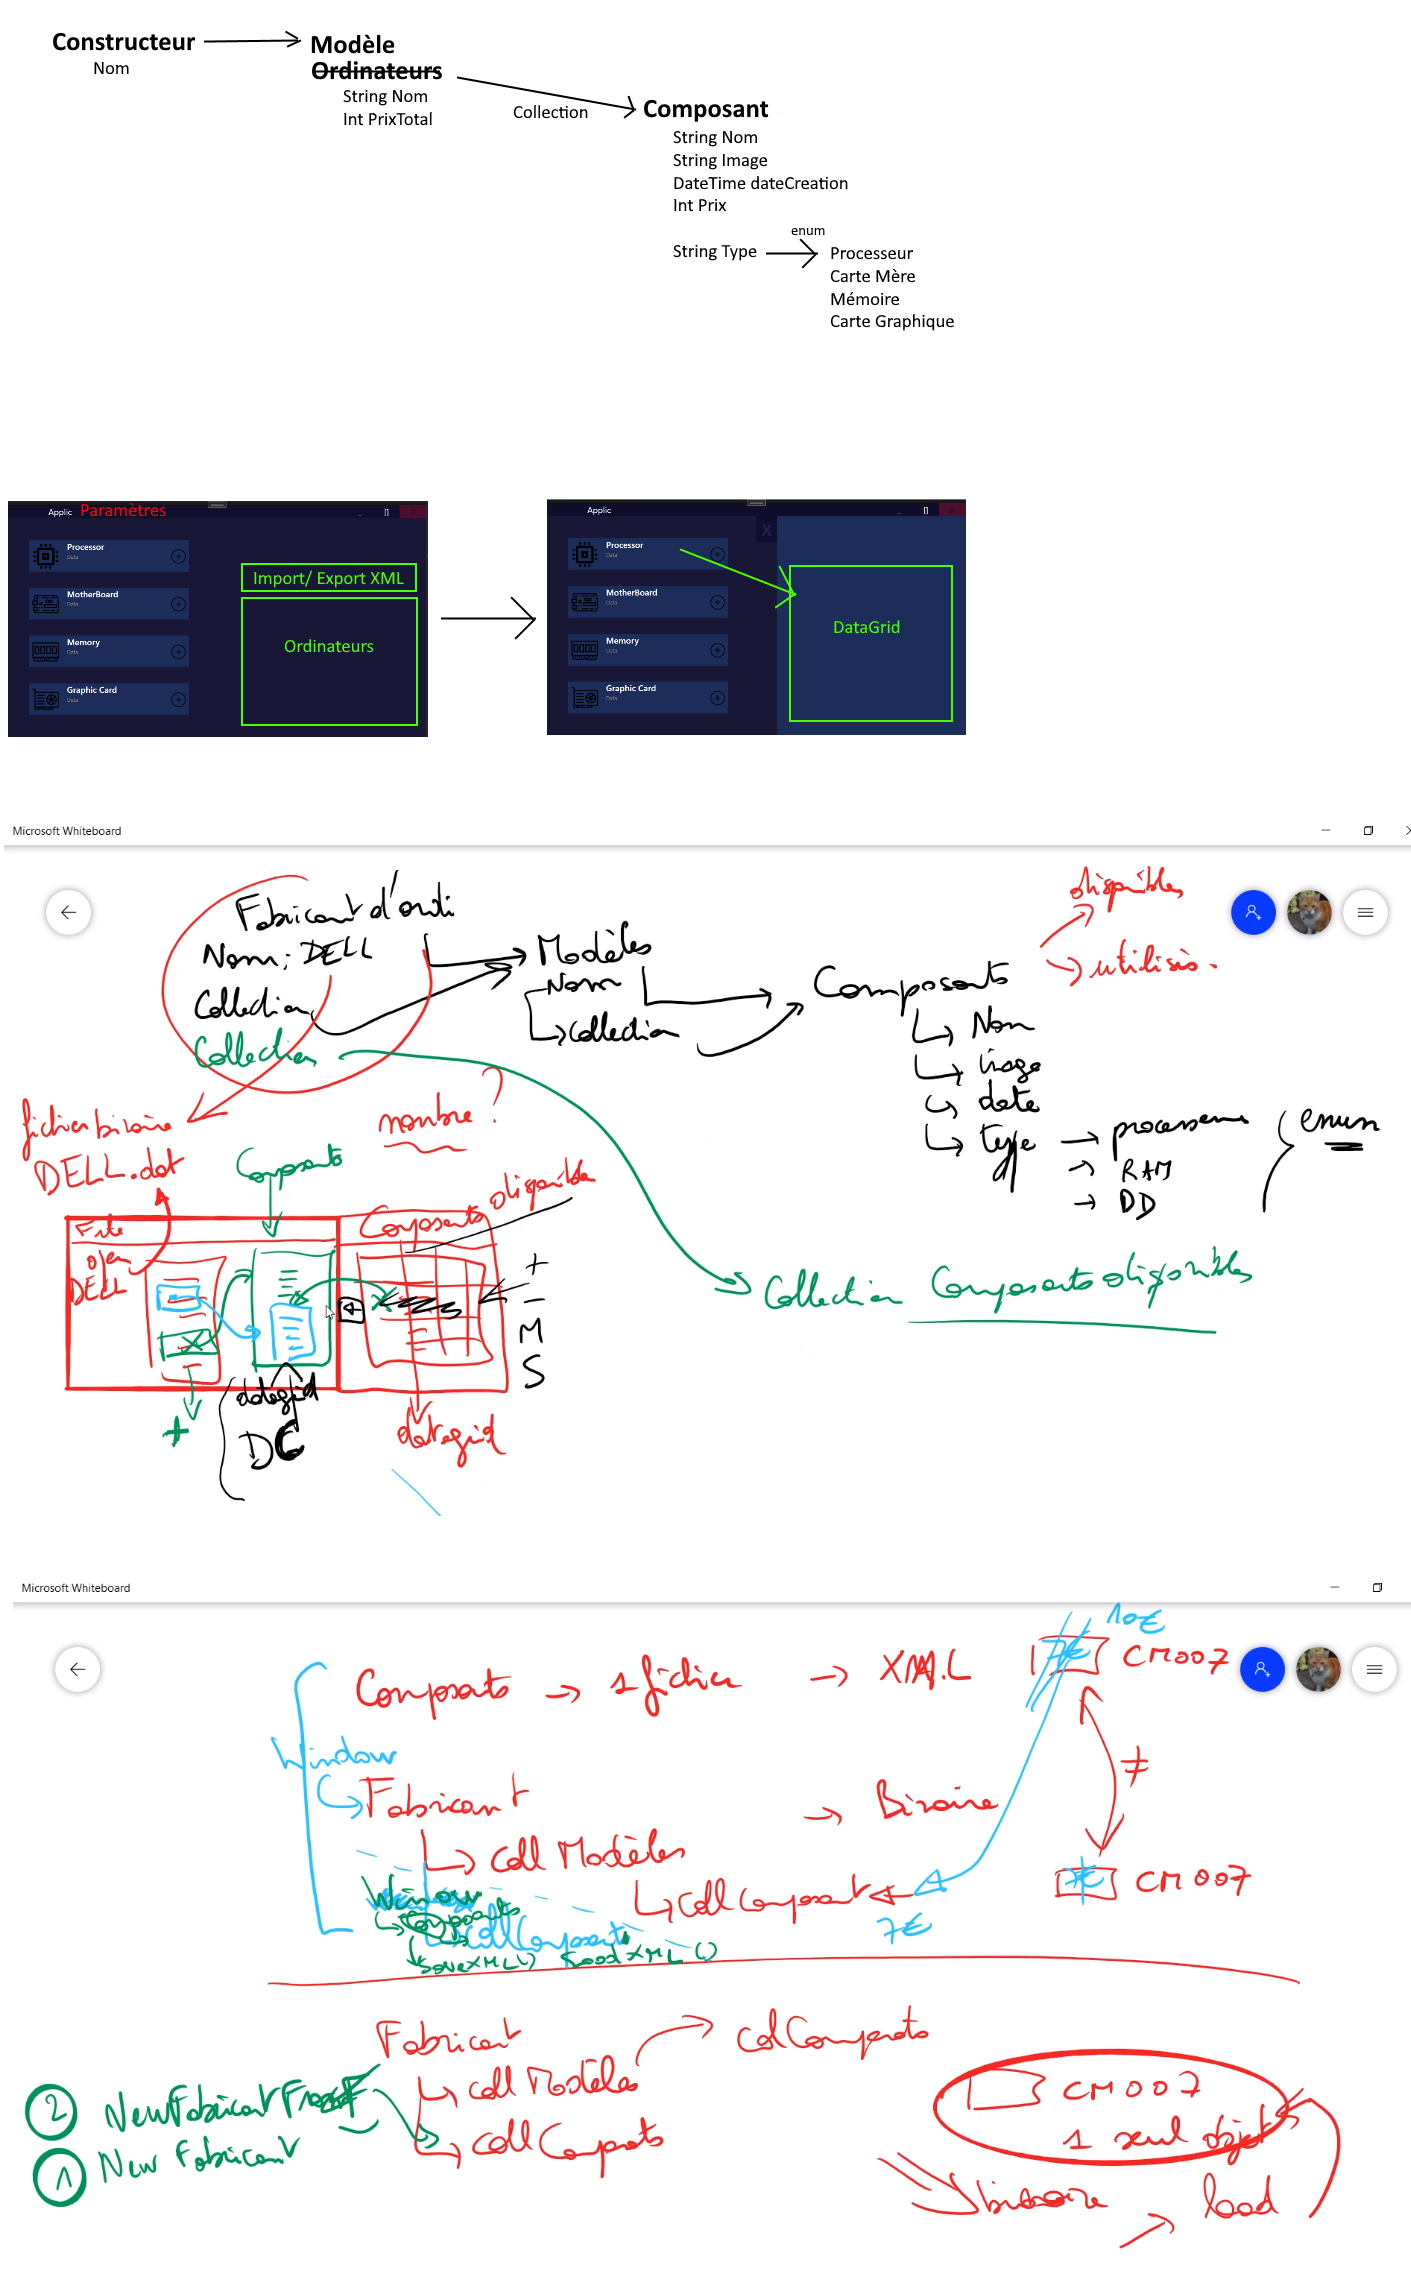 Constructeur
Nom
Modèle
Ordinateurs
String Nom
Int PrixTotal
Collection
Composant
String Nom
String Image
DateTime dateCreation
Int Prix
String Type
enum
Processeur
Carte Mère
Mémoire
Carte Graphique
Applic Paramètres
Processor
Data
MotherBoard
Data
Memory
Data
Graphic Card
Data
Import/ Export XML
Ordinateurs
Applic
X
Processor
Data
MotherBoard
Data
Memory
Data
Graphic Card
Data
DataGrid
Microsoft Whiteboard
Fabricant d'ordi
Nom: DELL
Collection
Collection
Modèles
Nom
Collection
Composants
disponibles
utilisés.
Nom
image
date
type
processeur
RAM
DD
enum
fichier binaire
DELL.dat
nombre ?
Composants
Composants disponible
File
open
DELL
+
-
M
S
+
datagrid
DC
datagrid
Collection Composants disponibles
Microsoft Whiteboard
Composants → 1 fichier → XML
10€
7€
CM007
Window
Fabricant → Binaire
≠
coll Modèles
coll Composant
7€
7€
CM007
Window
Composants
coll Composant
SaveXML() LoadXML()
Fabricant
coll Modèles
col Composants
coll Composants
2 New Fabricant
1 New Fabricant
CM007
1 seul objet
binaire
load